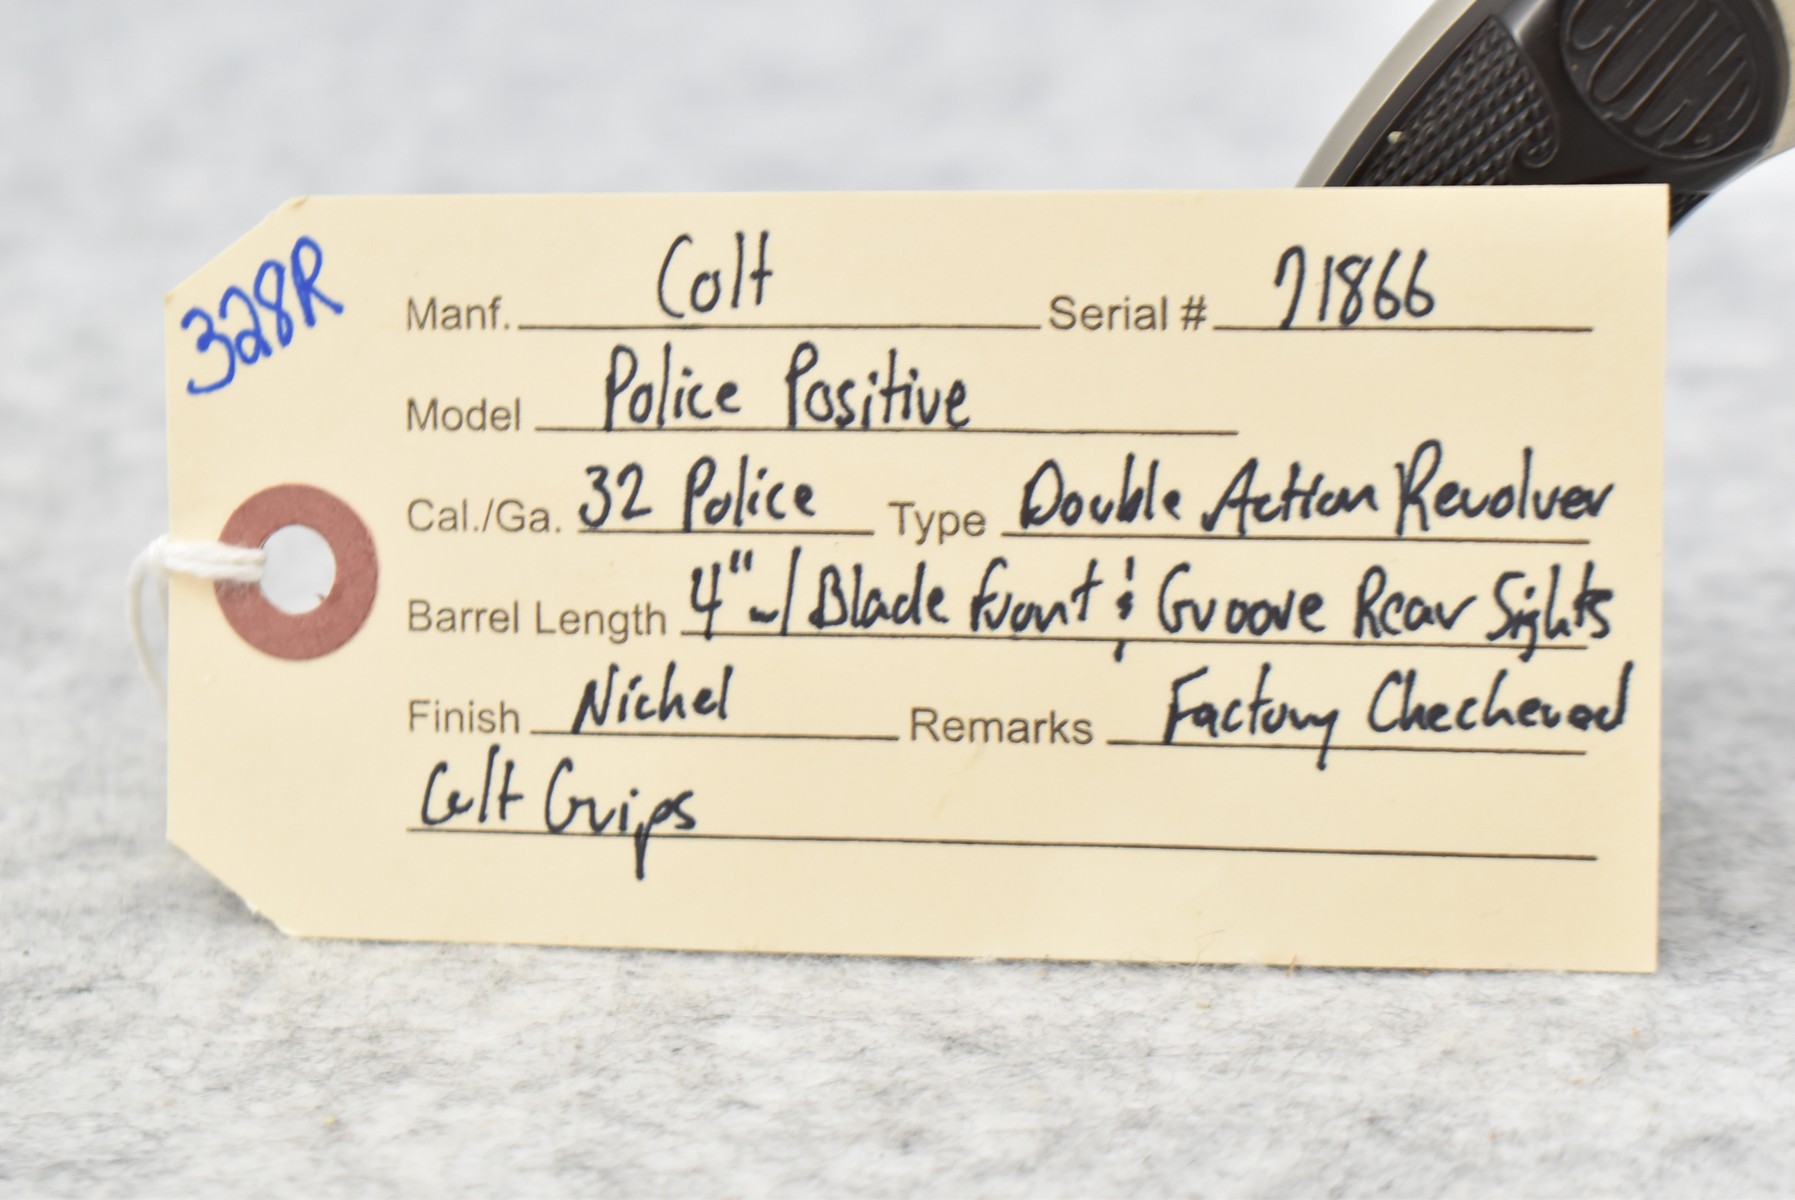 328R
Manf. Colt Serial # 71866
Model Police Positive
Cal./Ga. 32 Police Type Double Action Revolver
Barrel Length 4" w/ Blade Front & Groove Rear Sights
Finish Nickel Remarks Factory Checkered
Colt Grips
COLT